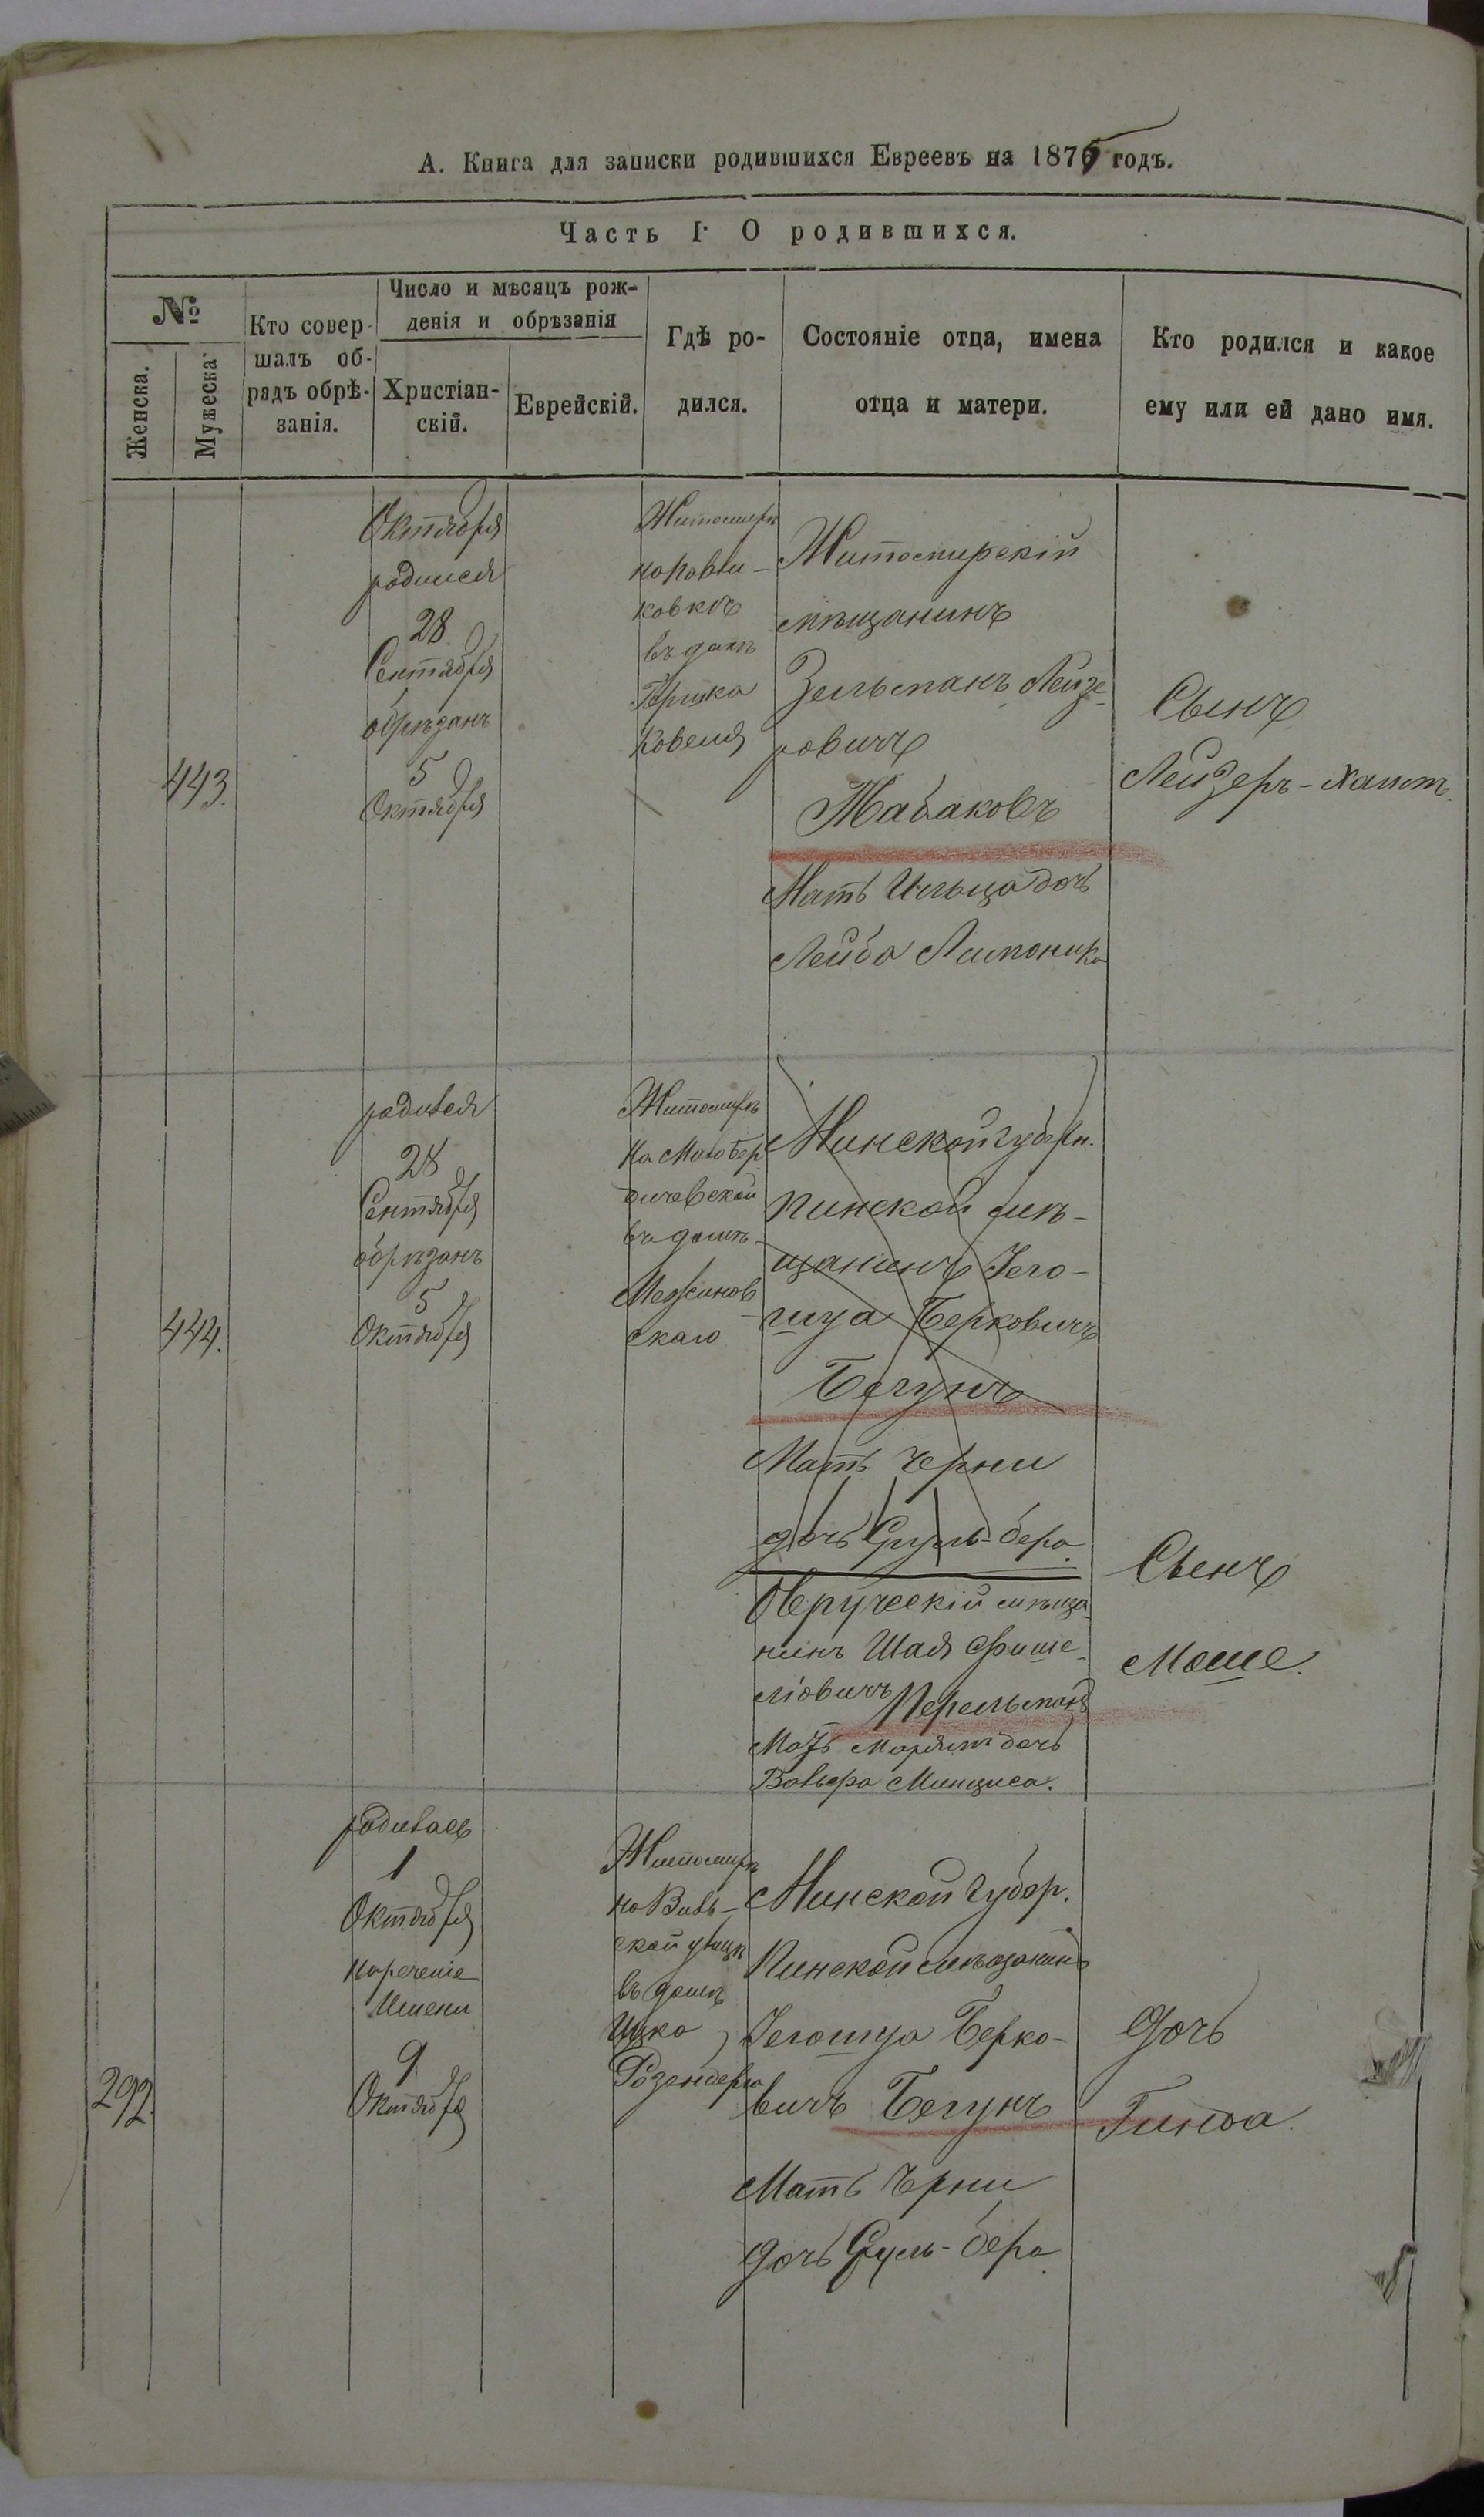 А. Книга для записки родившихся Евреевъ на 1875 годъ.
Часть I. О родившихся.
№
Женска.
Мужеска
Кто совер-
шалъ об-
рядъ обрѣ-
занія.
Число и мѣсяцъ рож-
денія и обрѣзанія
Христіан-
скій.
Еврейскій.
Гдѣ ро-
дился.
Состояніе отца, имена
отца и матери.
Кто родился и какое
ему или ей дано имя.
443.
Октября
родился
28
Сентября
обрѣзанъ
5
Октября
Житомирѣ
ковкѣ
въ домѣ
Гершка
Ковеля
Житомирскій
мѣщанинъ
Зельманъ Лейзе-
ровичъ
Табаковъ
Мать
дочь
Лейба Лимоника
Сынъ
Лейзеръ-Хаимъ.
444.
родился
28
Сентября
обрѣзанъ
5
Октября
Житомирѣ
на Мало Бер
дичевской
въ домѣ
скаго
Минской губерн.
Пинской мѣ-
щанинъ Іего-
шуа Берковичъ
Бегунъ
Мать Черни
дочь Сруль-бера.
Овручскій мѣща
нинъ Шая Фише-
ліовичъ Перельманъ
Мать Маріям дочь
Вольфа Минциса.
Сынъ
Моше.
292.
родилась
1
Октября
нареченіе
Имени
9
Октября
Житомирѣ
на Виль-
ской улицѣ
въ домѣ
Ицко
Розенберга
Минской губер.
Пинской мѣщанинъ
Іегошуа Берко-
вичъ Бегунъ
Мать Черни
дочь Сруль-бера.
Дочь
Гинда.